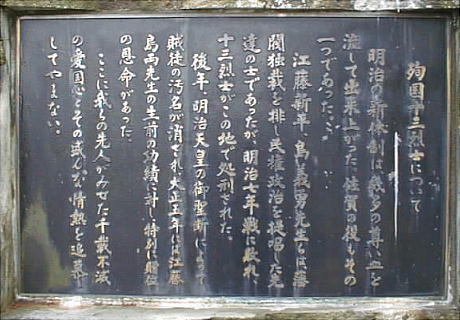 殉国十三烈士について
明治の新体制は幾多の尊い血を
流して出来上がった。佐賀の役もその
一つであった。
江藤新平、島義勇先生らは藩
閥独裁を排し民権政治を提唱した先
達の士であったが、明治七年戦に敗れ、
十三烈士がこの地で処刑された。
後年、明治天皇の御聖断によって
賊徒の汚名が消され大正五年には江藤
島両先生の生前の功績に対し特別に贈位
の恩命があった。
ここに我らの先人がみせた千載不滅
の愛国心とその盛んな情熱を追慕
してやまない。